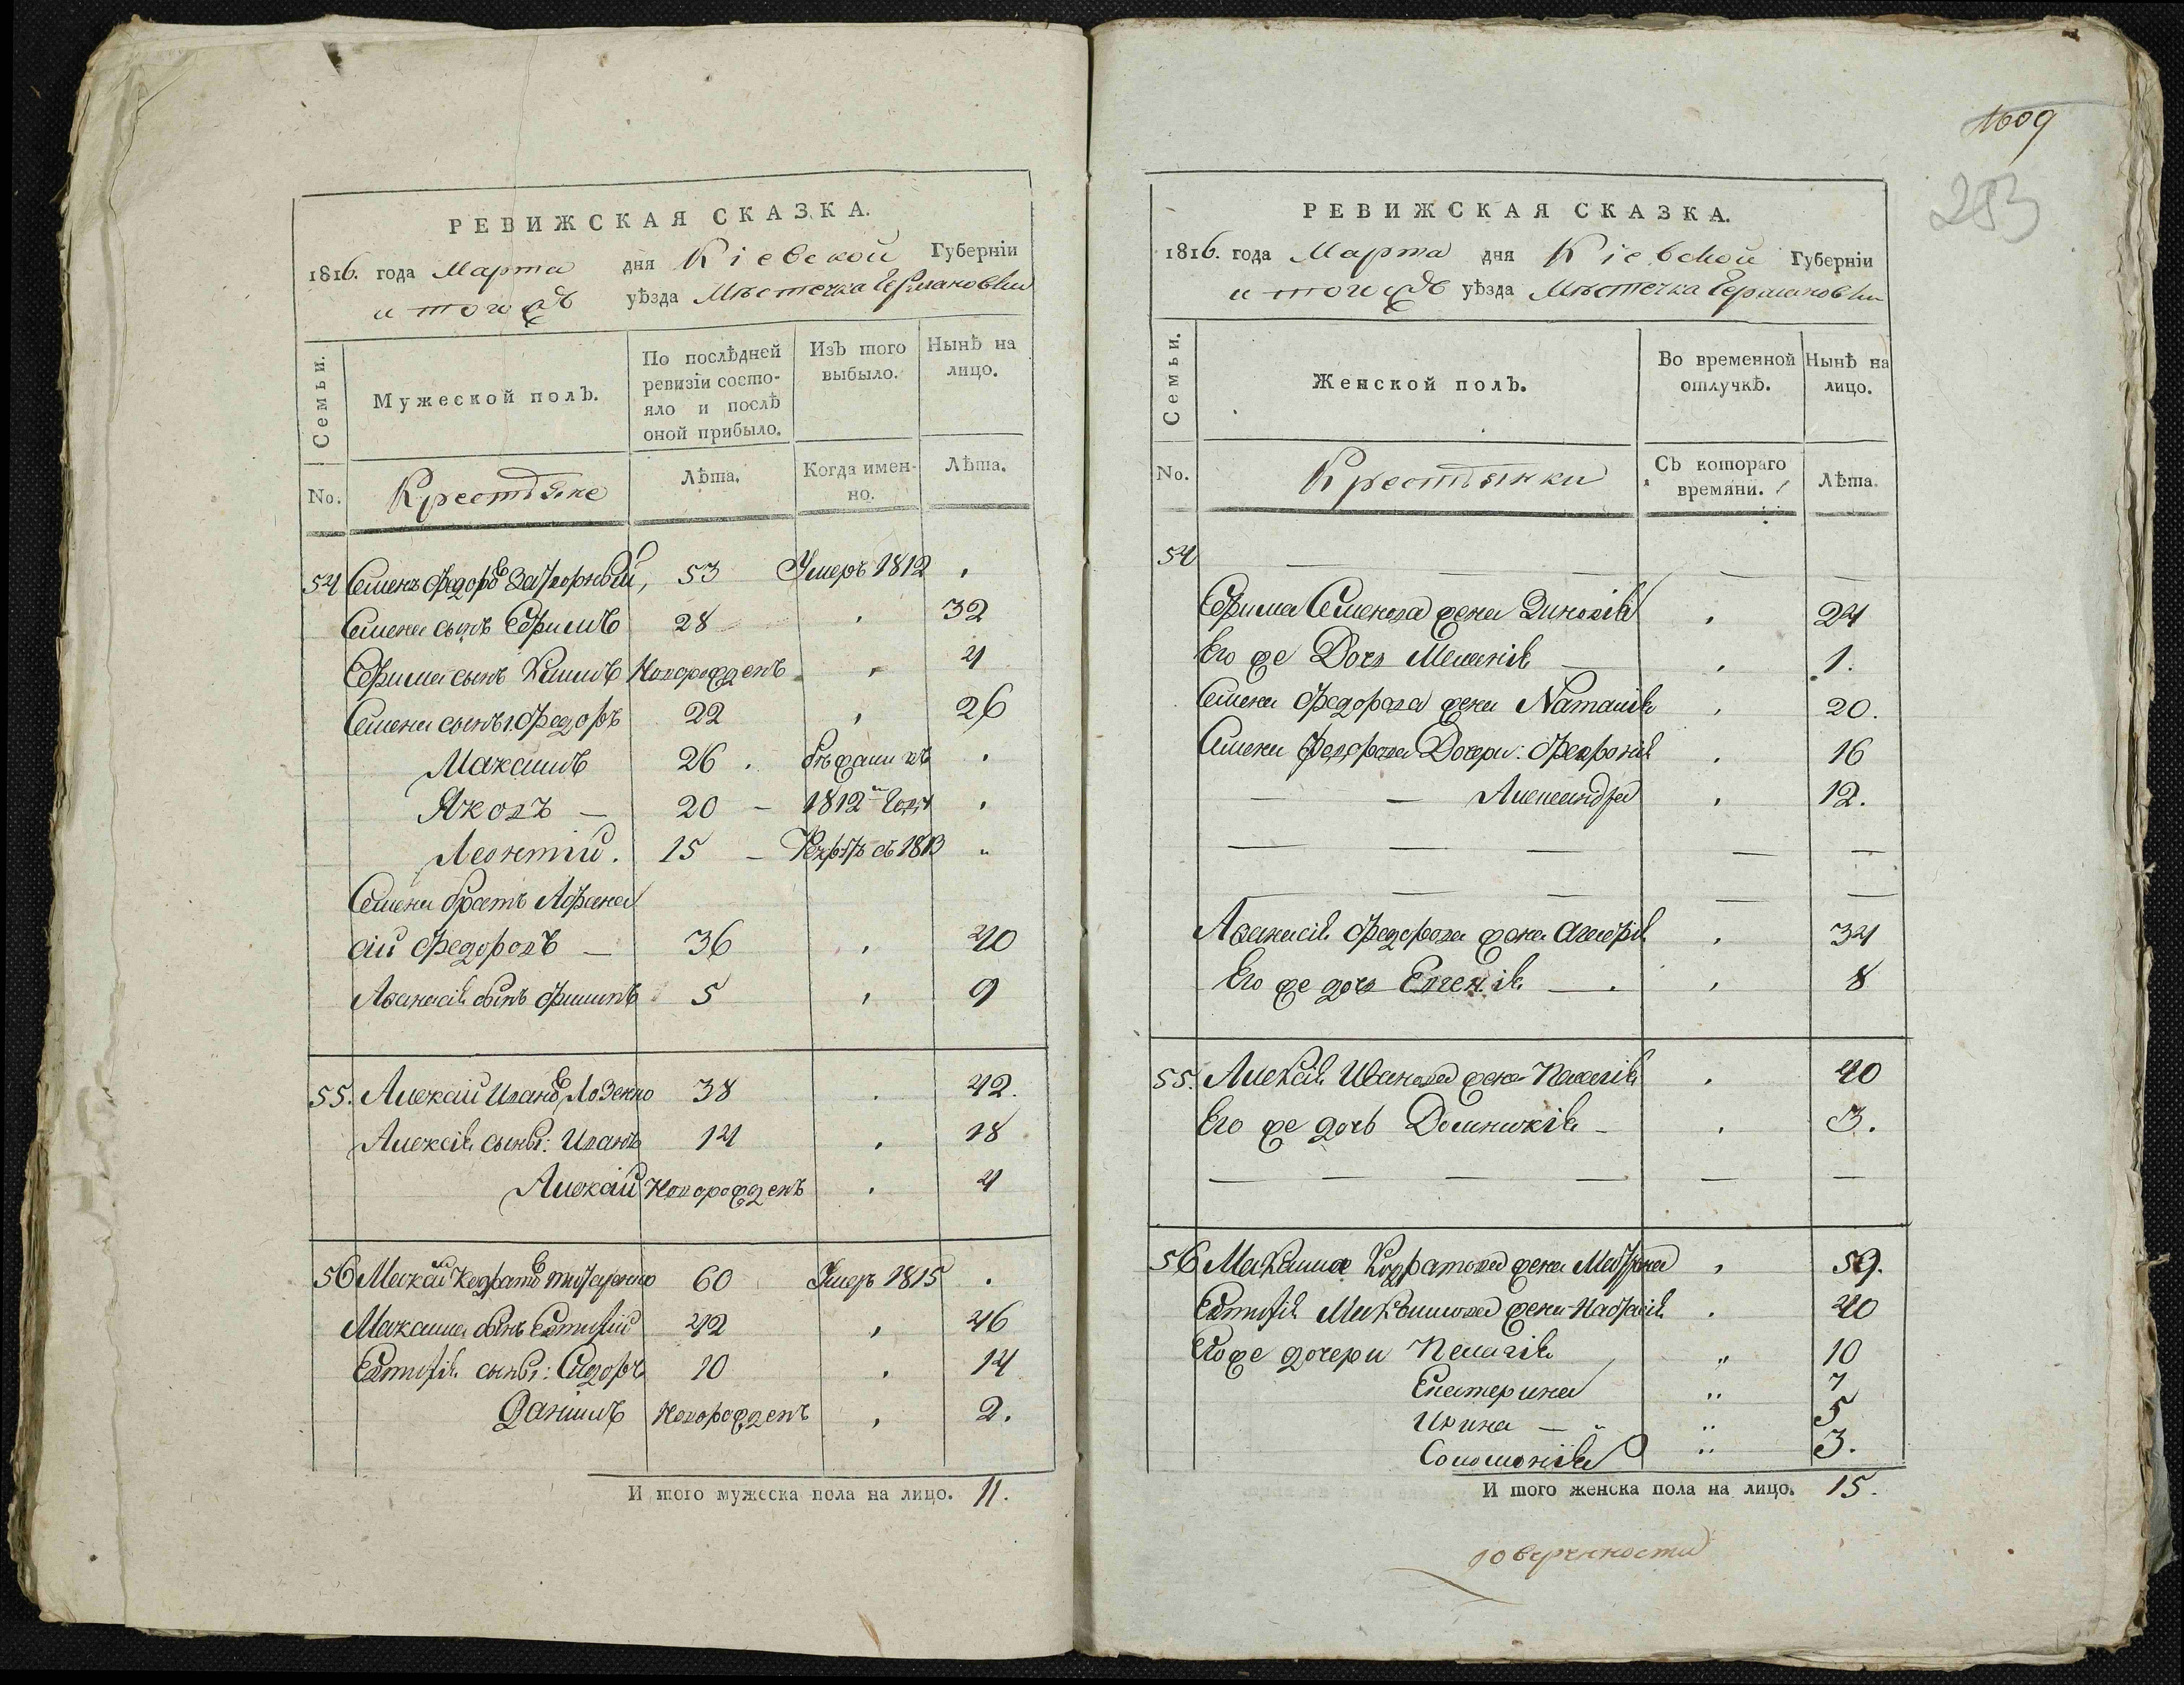 РЕВИЖСКАЯ СКАЗКА.
1816. года Марта дня Кіевской Губерніи
и тогожъ уѣзда Мѣстечка Германовки
Семьи.
Мужеской полъ.
По послѣдней ревизіи состояло и послѣ оной прибыло.
Изъ того выбыло.
Нынѣ на лицо.
No. Крестьяне Лѣта. Когда именно. Лѣта.
54 Семенъ Федоровъ 53 Умеръ 1812
Семена сынъ Ефимъ 28 32
Ефима сынъ Климъ Новорожденъ 4
Семена сынъ 1. Федоръ 22 26
Максимъ 26 бѣжали въ
Яковъ — 20 — 1812м году
Леонтій. 15 — Рекрутъ съ 1813
Семена братъ Афана
сій Федоровъ — 36 40
Аѳанасія сынъ Филипъ 5 9
55. Алексій Ивановъ Лозенко 38 42.
Алексія сыны: Иванъ 14 18
Алексій Новорожденъ 4
56 Кодратовъ 60 Умеръ 1815
Максима сынъ Евтифій 42 46
Евтифія сыны: Сидоръ 10 14
Даніилъ Новорожденъ 2.
И того мужеска пола на лицо. 11.
1609
283
РЕВИЖСКАЯ СКАЗКА.
1816. года Марта дня Кіевской Губерніи
и тогожъ уѣзда Мѣстечка Германовки
Семьи.
Женской полъ.
Во временной отлучкѣ.
Нынѣ на лицо.
No. Крестьянки Съ котораго времяни. Лѣта.
54 — — — — —
Ефима Семенова жена Зиновія 24
Его же Дочь Меланія 1.
Семена Федорова жена Наталія 20.
Семена Федорова Дочери: Февронія 16
— — Александра 12.
— — — — —
— — — — —
Аѳанасія Федорова жена Агафія 34
Его же дочь Евгенія — 8
55. Алексія Иванова жена Пелагія 40
Его же дочь Доминикія — 3.
— — — — — —
56 Максима Кодратова жена Матрона 59.
Евтифія Максимова жена Настасія 40
Его же дочери Пелагія 10
Екатерина 7
Ирина — 5
Соломонія 3.
И того женска пола на лицо. 15.